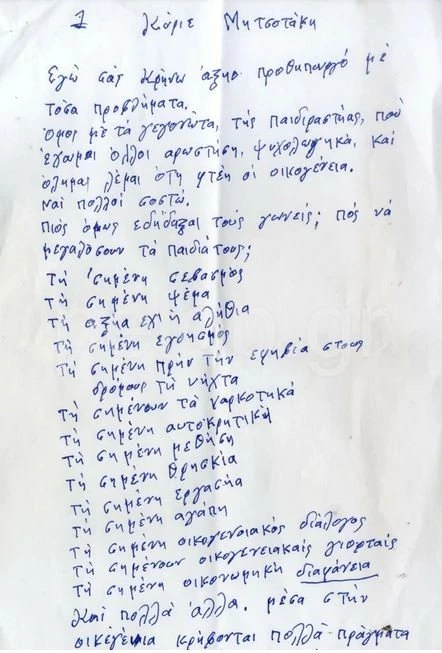 1 Κύριε Μητσοτάκη
Εγώ σας κρήνω άξηο προθηπουργό με
τόσα προβλήματα.
όμος με τά γεγονώτα, τής παιδιραστήας, πού
έχωμαι όλλοι αρωστήση, ψυχολωγηκά, καί
όλημαι λέμαι ότη φτέη οι οικογένεια.
Ναί πολλοί σοστώ.
Πιός όμως εδήδαξαι τούς γωνείς; πός νά
μεγαλόσουν τά παιδιά τους;
Τή σημένη σεβασμός
Τή σημένη ψέμα
Τή αξήα έχι ή αλήθια
Τή σημένη εγοησμός
Τή σημένη πρήν τήν εφηβία στους
δρόμους τή νήχτα
Τή σημένουν τά ναρκοτικά
Τή σημένη αυτοκρητική
Τή σημένη μεθήση
Τή σημένη θρησκία
Τή σημένη εργασήα
Τή σημένη αγάπη
Τή σημένη οικογενειακός διάλογος
Τή σημένουν οικογενειακαίς γιορταίς
Τή σημένη οικονωμηκή διαφάνεια
Καί πολλά άλλα. μέσα στήν
οικέγένια κρήβονται πολλά πράγματα